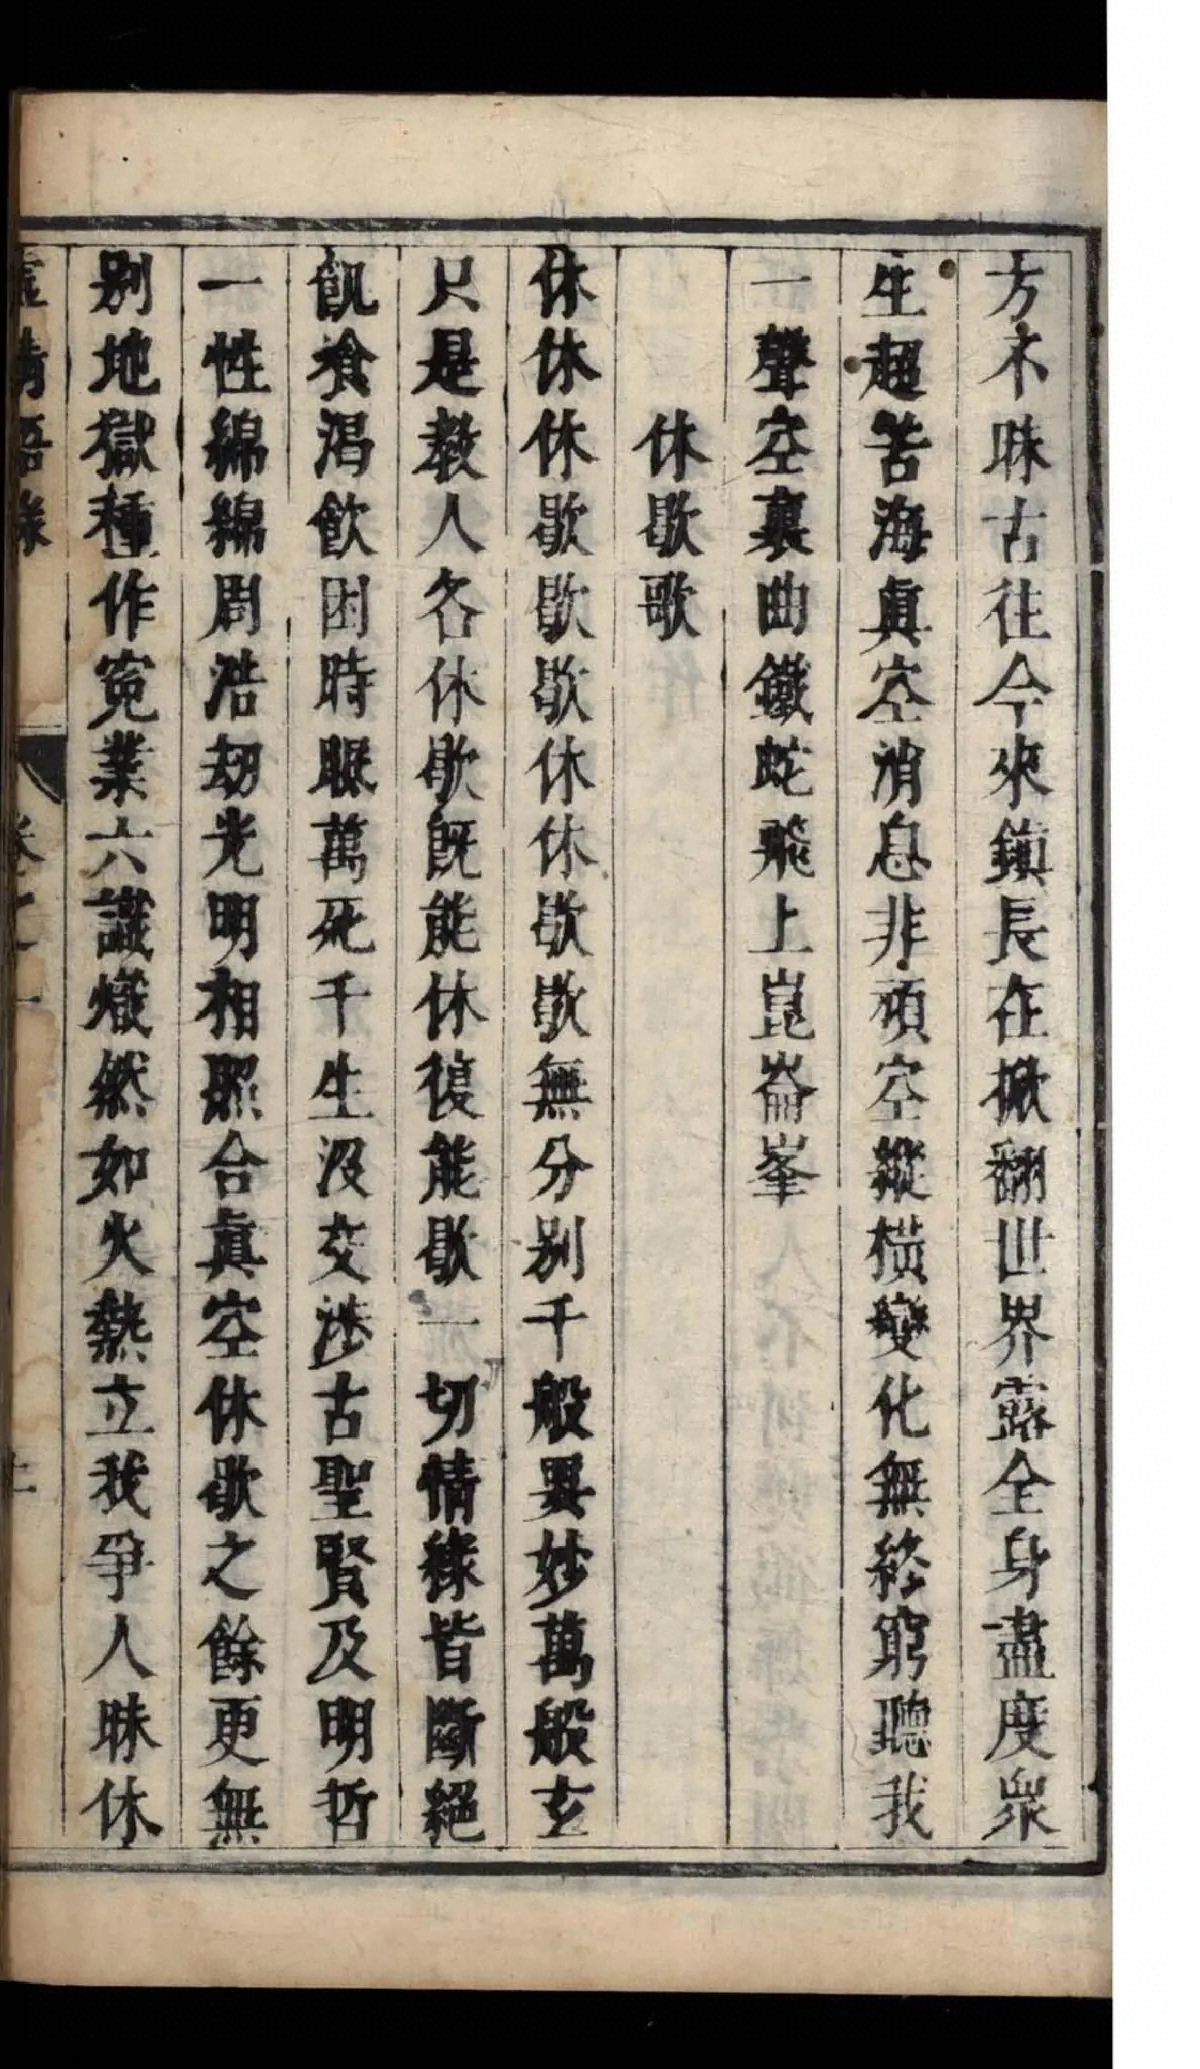 方不昧古往今來鎮長在掀翻世界露全身盡度衆
生超苦海真空消息非頑空縱橫變化無終窮聽我
一聲空裏曲鐵蛇飛上崑崙峯
休歇歌
休休休歇歇歇休休歇歇無分別千般異妙萬般玄
只是教人各休歇旣能休復能歇一切情緣皆斷絕
飢飡渴飲困時眠萬死千生沒交涉古聖賢及明哲
一性綿綿周浩劫光明相照合眞空休歇之餘更無
別地獄種作寃業六識熾然如火熱立我爭人昧休
語錄